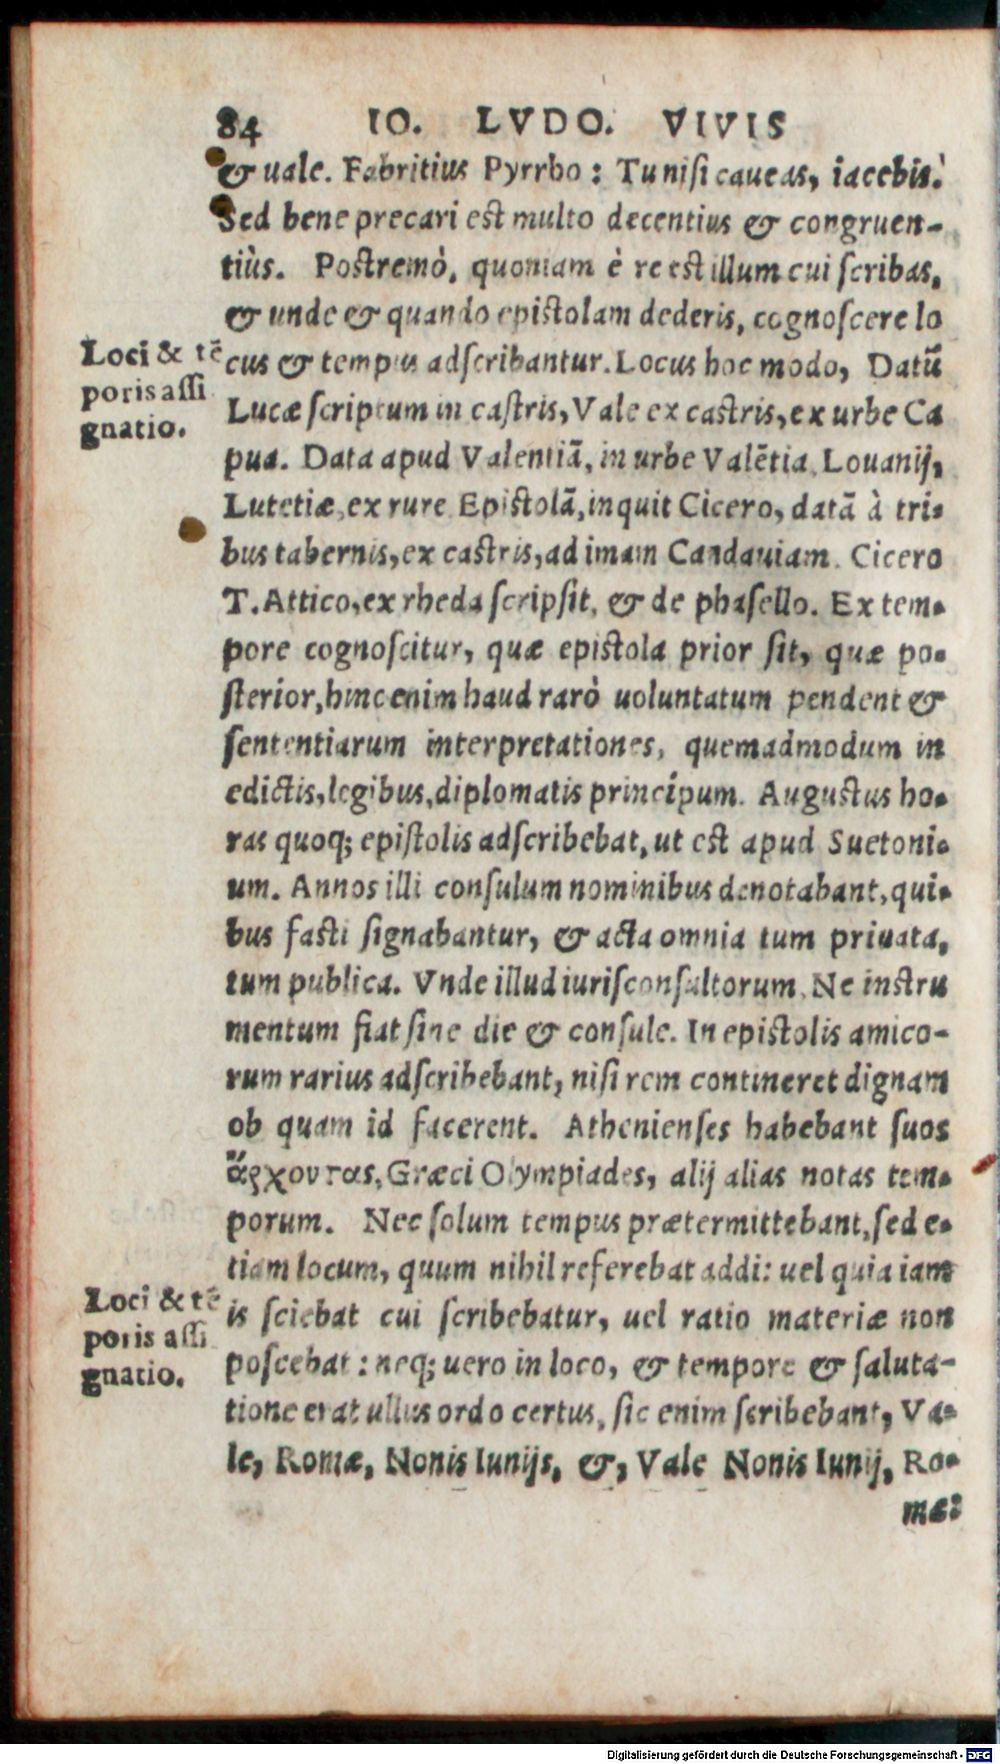 84 IO. LVDO. VIVIS
& uale. Fabritius Pyrrho : Tu nisi caueas, iacebis.
Sed bene precari est multo decentius & congruen-
tiùs. Postremò, quoniam è re est illum cui scribas,
& unde & quando epistolam dederis, cognoscere lo
Loci & tē
poris assi
gnatio.
cus & tempus adscribantur. Locus hoc modo, Datū
Lucæ scriptum in castris, Vale ex castris, ex urbe Ca
pua. Data apud Valentiā, in urbe Valētia, Louanij,
Lutetiæ, ex rure Epistolā, inquit Cicero, datā à tri-
bus tabernis, ex castris, ad imam Candauiam. Cicero
T. Attico, ex rheda scripsit, & de phasello. Ex tem-
pore cognoscitur, quæ epistola prior sit, quæ po-
sterior, hinc enim haud rarò uoluntatum pendent &
sententiarum interpretationes, quemadmodum in
edictis, legibus, diplomatis principum. Augustus ho-
ras quoq; epistolis adscribebat, ut est apud Suetoni-
um. Annos illi consulum nominibus denotabant, qui-
bus fasti signabantur, & acta omnia tum priuata,
tum publica. Vnde illud iurisconsultorum, Ne instru
mentum fiat sine die & consule. In epistolis amico-
rum rarius adscribebant, nisi rem contineret dignam
ob quam id facerent. Athenienses habebant suos
ἄρχοντας, Græci Olympiades, alij alias notas tem-
porum. Nec solum tempus prætermittebant, sed e-
tiam locum, quum nihil referebat addi: uel quia iam
Loci & tē
poris assi
gnatio.
is sciebat cui scribebatur, uel ratio materiæ non
poscebat : neq; uero in loco, & tempore & saluta-
tione erat ullus ordo certus, sic enim scribebant, Va-
le, Romæ, Nonis Iunijs, &, Vale Nonis Iunij, Ro-
mæ:
Digitalisierung gefördert durch die Deutsche Forschungsgemeinschaft - DFG